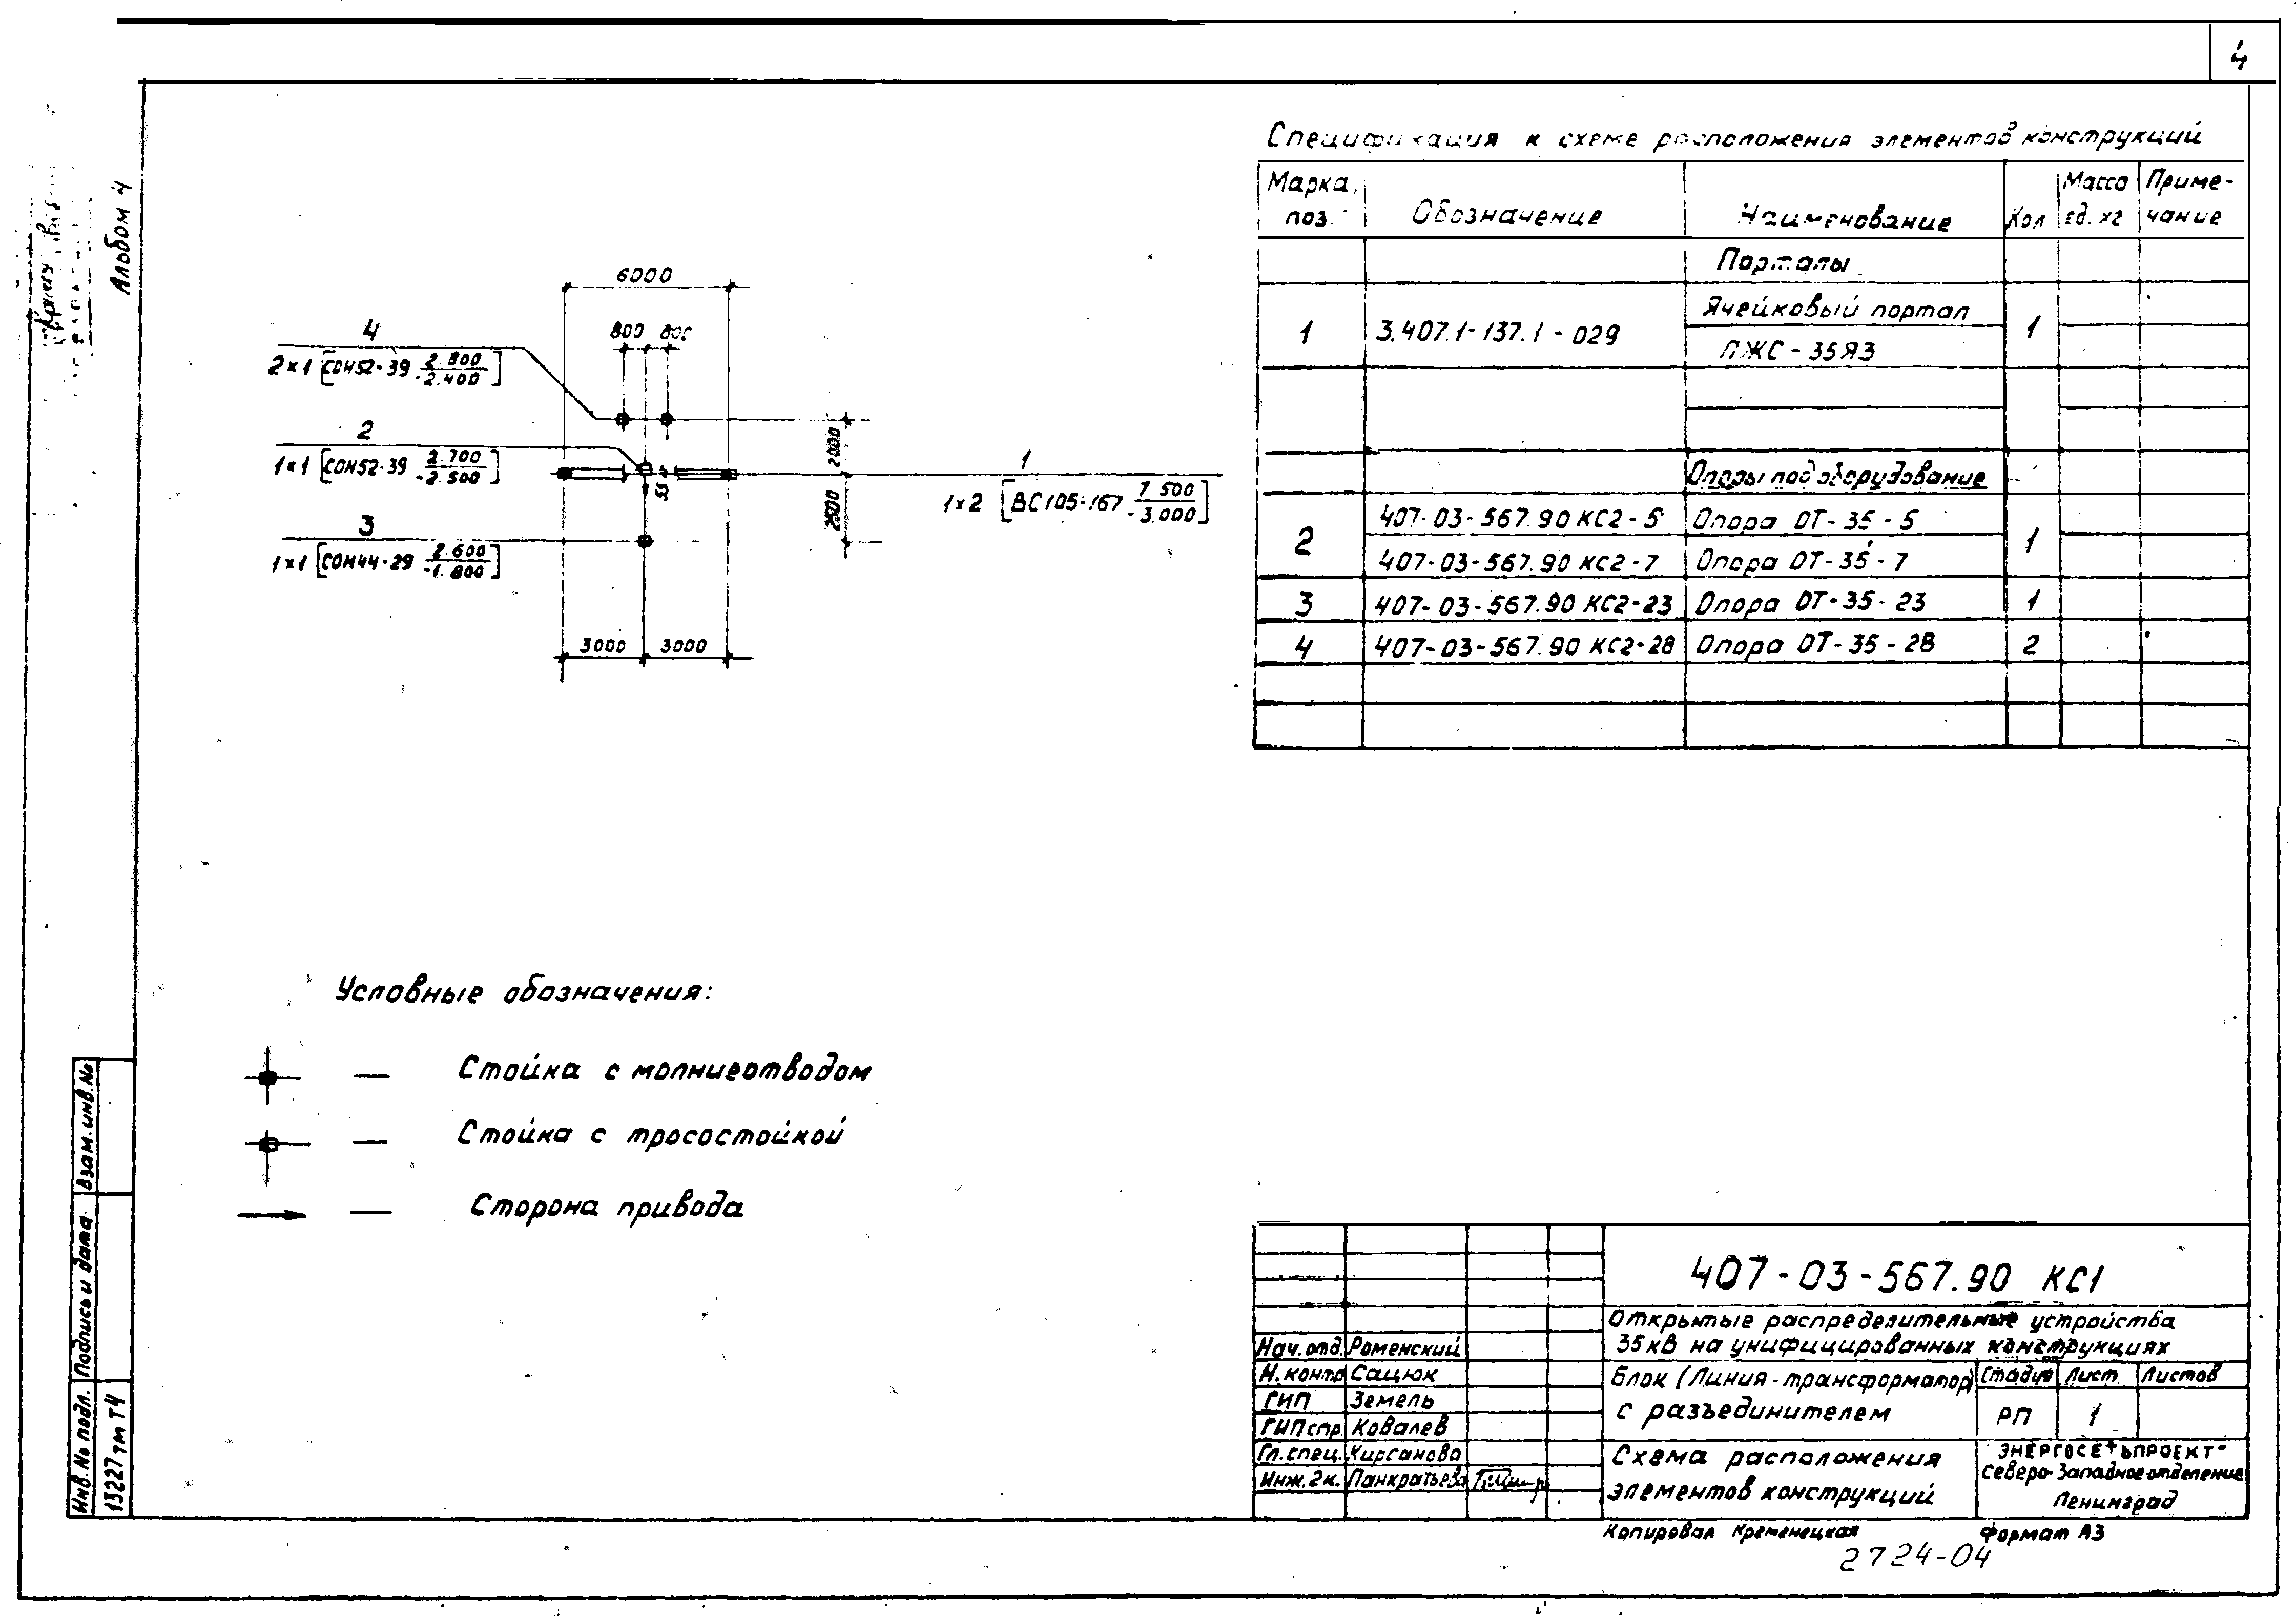 4
Альбом 4
Спецификация к схеме расположения элементов конструкций
Марка, поз. Обозначение Наименование Кол Масса ед. кг Приме-чание
Порталы
1 3.407.1-137.1-029 Ячейковый портал 1
ПЖС-35Я3
Опоры под оборудование
2 407-03-567.90 КС2-5 Опора ОТ-35-5 1
407-03-567.90 КС2-7 Опора ОТ-35-7
3 407-03-567.90 КС2-23 Опора ОТ-35-23 1
4 407-03-567.90 КС2-28 Опора ОТ-35-28 2
6000
800 800
4
2×1 [СОН52-39 2.800/-2.400]
2
1×1 [СОН52-39 2.700/-2.500]
3
1×1 [СОН44-29 2.600/-1.800]
1
1×2 [ВС105-167 7.500/-3.000]
2000
2500
55
3000 3000
Условные обозначения:
— Стойка с молниеотводом
— Стойка с тросостойкой
— Сторона привода
Взам.инв.№
Подпись и дата
Инв.№ подл.
13227тм Т4
407-03-567.90 КС1
Открытые распределительные устройства
35кВ на унифицированных конструкциях
Нач.отд. Роменский
Н.контр Сацюк
ГИП Земель
ГИПстр. Ковалев
Гл.спец. Кирсанова
Инж.2к. Панкратьева
Блок (Линия-трансформатор)
с разъединителем
Стадия Лист Листов
РП 1
Схема расположения
элементов конструкций
ЭНЕРГОСЕТЬПРОЕКТ"
Северо-Западное отделение
Ленинград
Копировал Кременецкая Формат А3
2724-04